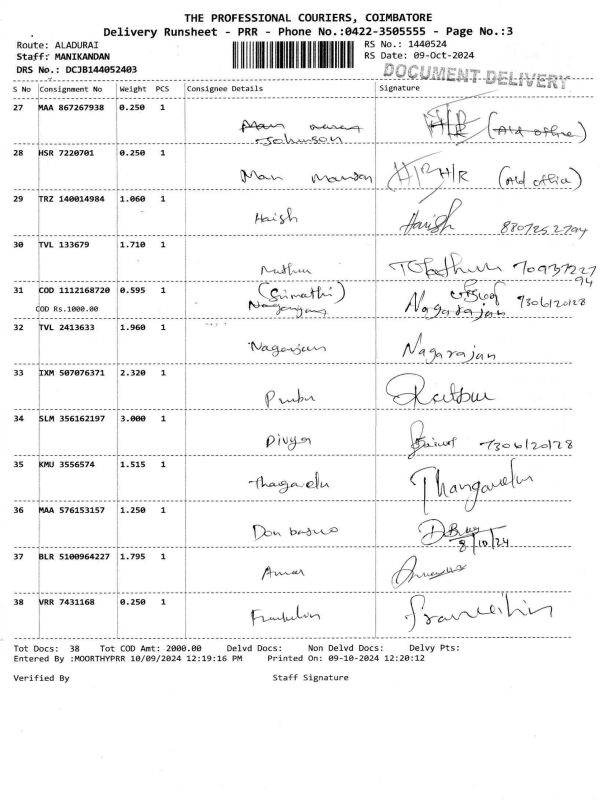 THE PROFESSIONAL COURIERS, COIMBATORE
Delivery Runsheet - PRR - Phone No.:0422-3505555 - Page No.:3
Route: ALADURAI RS No.: 1440524
Staff: MANIKANDAN RS Date: 09-Oct-2024
DRS No.: DCJB144052403 DOCUMENT DELIVERY
S No Consignment No Weight PCS Consignee Details Signature
27 MAA 867267938 0.250 1
Johnson
28 HSR 7220701 0.250 1
Man H/R (Old office)
29 TRZ 140014984 1.060 1
Haish Harish 8807252794
30 TVL 133679 1.710 1
31 COD 1112168720 0.595 1 (Srimathi)
COD Rs.1000.00 Nagarajan 7306120128
32 TVL 2413633 1.960 1
Nagarajan Nagarajan
33 IXM 507076371 2.320 1
34 SLM 356162197 3.000 1
Divya 7306120128
35 KMU 3556574 1.515 1
Thangavelu
36 MAA 576153157 1.250 1
Don bosco
8/10/24
37 BLR 5100964227 1.795 1
Amar
38 VRR 7431168 0.250 1
Tot Docs: 38 Tot COD Amt: 2000.00 Delvd Docs: Non Delvd Docs: Delvy Pts:
Entered By :MOORTHYPRR 10/09/2024 12:19:16 PM Printed On: 09-10-2024 12:20:12
Verified By Staff Signature